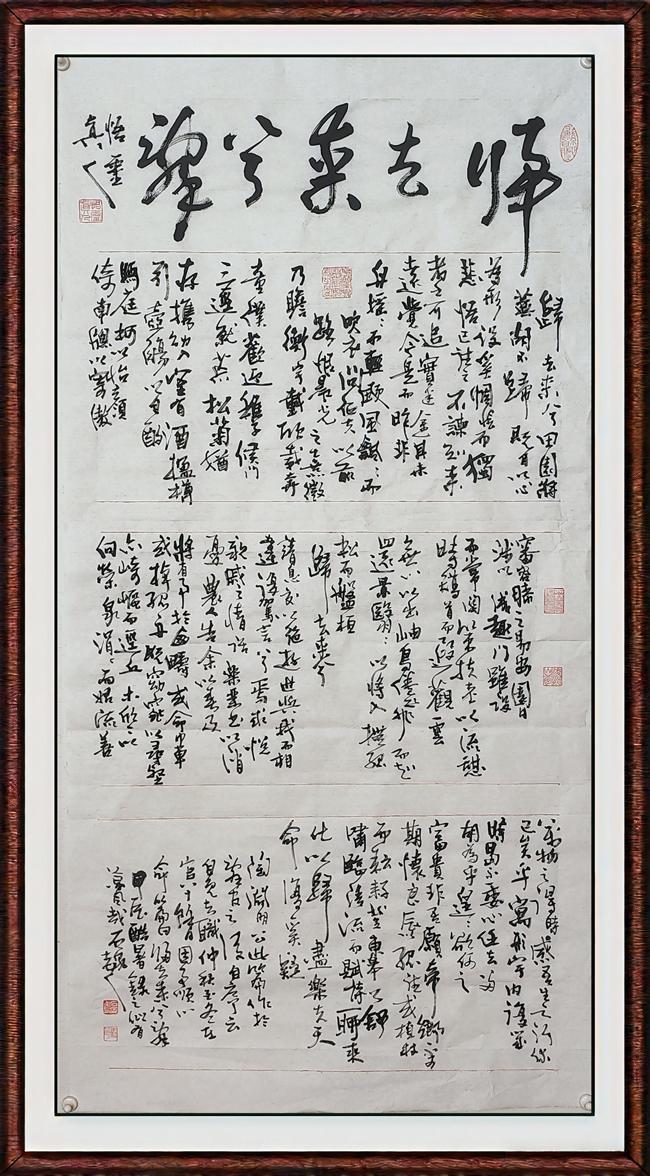 歸去來兮辭
悟靈
真人
歸去來兮田園將
蕪胡不歸既自以心
為形役奚惆悵而獨
悲悟已往之不諫知來
者之可追實迷途其未
遠覺今是而昨非
舟遙々而輕颺風飄々而
吹衣問征夫以前
路恨晨光之熹微
乃瞻衡宇載欣載奔
童僕歡迎稚子候門
三逕就荒松菊猶
存攜幼入室有酒盈樽
引壺觴以自酌
眄庭柯以怡顏
倚南窗以寄傲
審容膝之易安園日
涉以成趣門雖設
而常關策扶老以流憩
時矯首而遐觀雲
無心以出岫鳥倦飛而知
還景翳々以將入撫孤
松而盤桓
歸去來兮
請息交以絕遊世與我而相
違復駕言兮焉求悅
親戚之情話樂琴書以消
憂農人告余以春及
將有事於西疇或命巾車
或棹孤舟既窈窕以尋壑
亦崎嶇而經丘木欣々以
向榮泉涓々而始流善
萬物之得時感吾生之行休
已矣乎寓形宇內復幾
時曷不委心任去留
胡為乎遑々欲何之
富貴非吾願帝鄉不可
期懷良辰以孤往或植杖
而耘耔登東皋以舒
嘯臨清流而賦詩聊乘
化以歸盡樂夫天
命復奚疑
陶淵明公此篇作於
辭官之後自序云
自免去職仲秋至冬在
官八十餘日因事順心
命篇曰歸去來兮辭
甲辰酷暑錄之